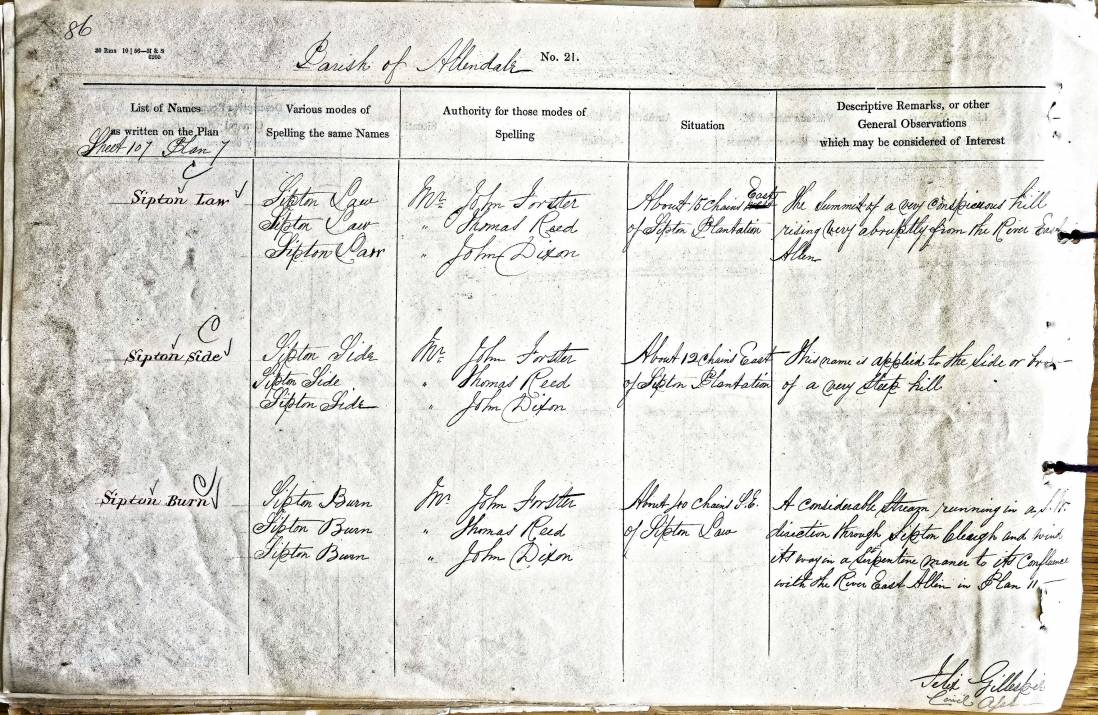 86
Parish of Allendale No. 21.
List of Names
as written on the Plan
Sheet 107 Plan 7
Various modes of
Spelling the same Names
Authority for those modes of
Spelling
Situation
Descriptive Remarks, or other
General Observations
which may be considered of Interest
Sipton Law
Sipton Law
Sipton Law
Sipton Law
Mr. John Forster
" Thomas Reed
" John Dixon
About 15 chains East
of Sipton Plantation
The summit of a very conspicuous hill
rising very abruptly from the River East
Allen
Sipton Side
Sipton Side
Sipton Side
Sipton Side
Mr. John Forster
" Thomas Reed
" John Dixon
About 12 chains East
of Sipton Plantation
This name is applied to the side or
of a very steep hill
Sipton Burn
Sipton Burn
Sipton Burn
Sipton Burn
Mr. John Forster
" Thomas Reed
" John Dixon
About 40 chains S.E.
of Sipton Law
A considerable Stream running in a
direction through Sipton Cleugh and wind
its way in a serpentine maner to its Confluence
with the River East Allen in Plan 11
Felix Gillespie
Civil Asst